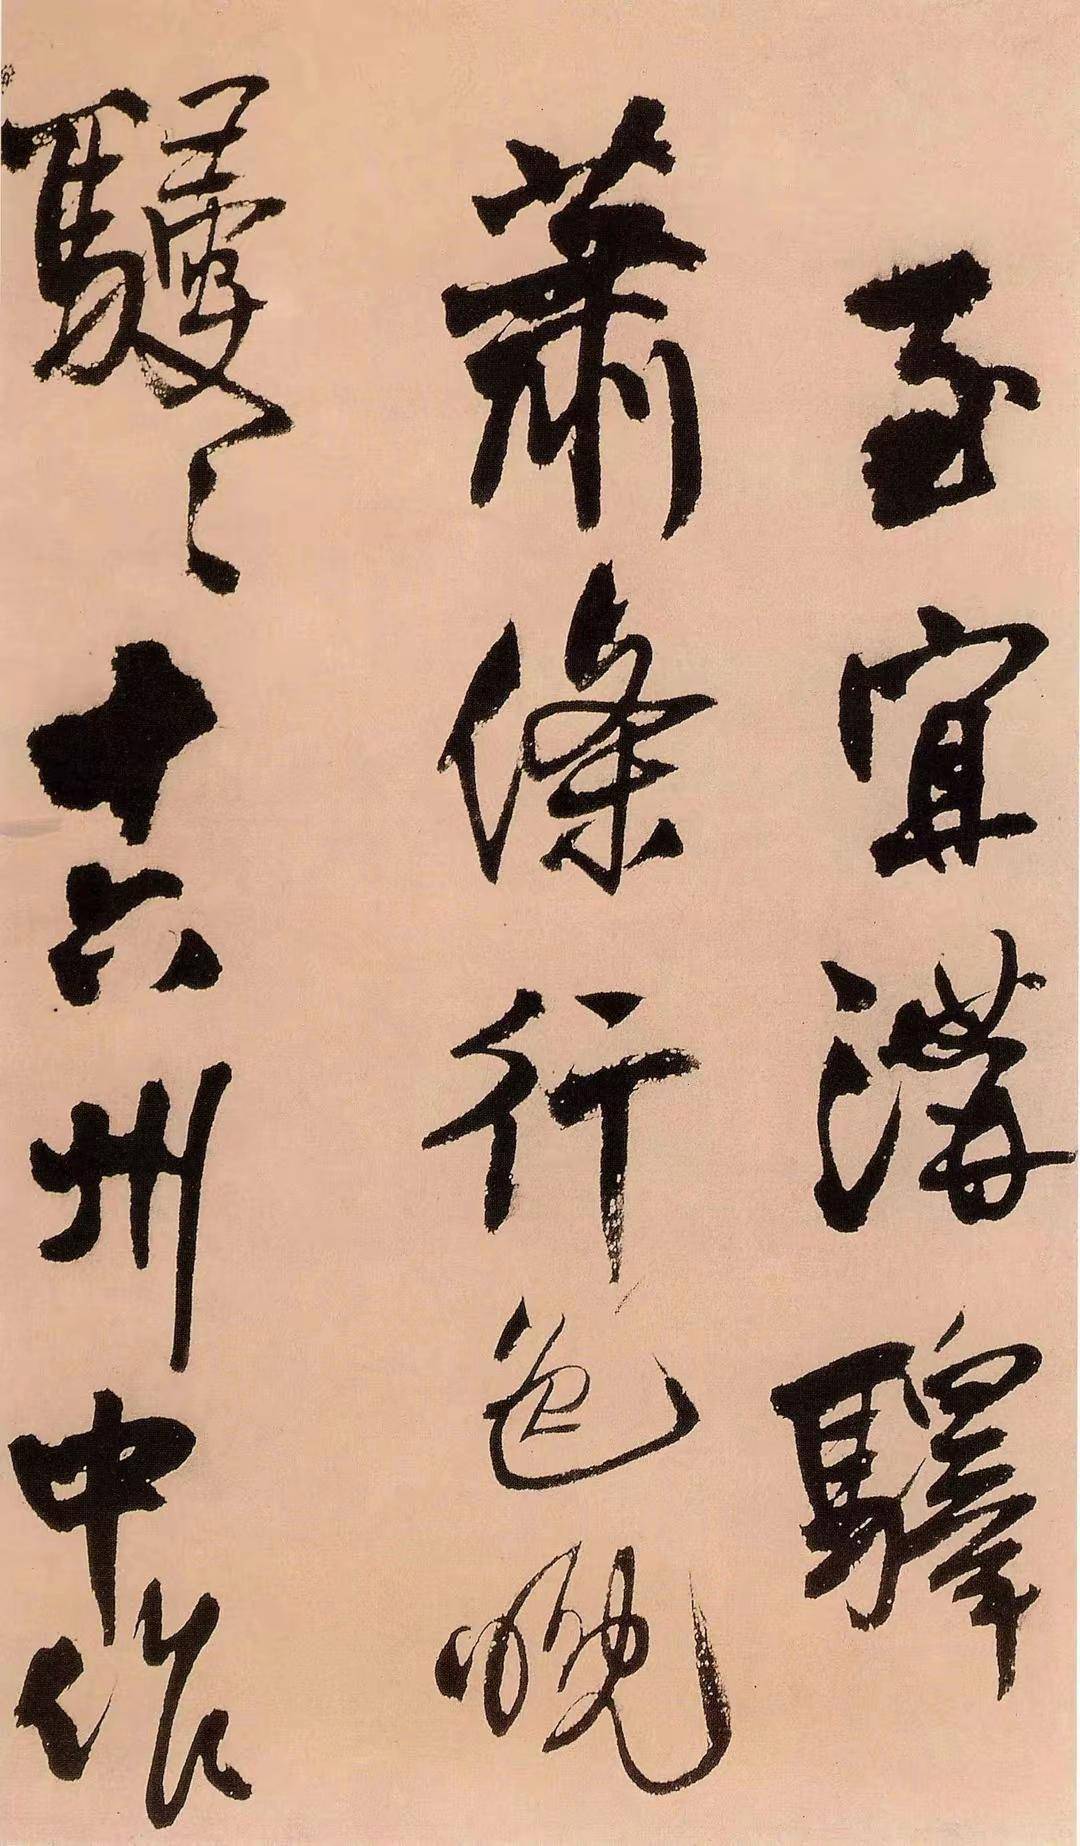 至宜溝驛
蕭條行色晚
十六州中作